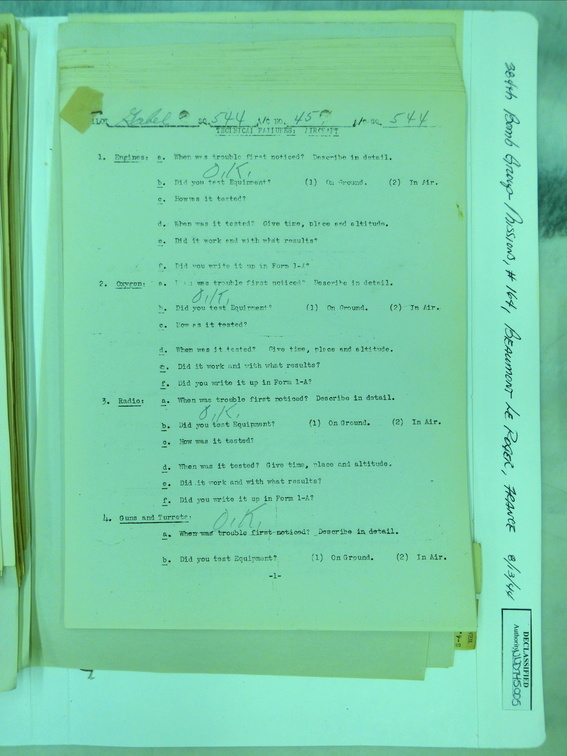 544 457 544
TECHNICAL FAILURES: AIRCRAFT
1. Engines: a. When was trouble first noticed? Describe in detail.
O.K.
b. Did you test Equipment? (1) On Ground. (2) In Air.
c. How was it tested?
d. When was it tested? Give time, place and altitude.
e. Did it work and with what results?
f. Did you write it up in Form 1-A?
2. Oxygen: a. When was trouble first noticed? Describe in detail.
O.K.
b. Did you test Equipment? (1) On Ground. (2) In Air.
c. How was it tested?
d. When was it tested? Give time, place and altitude.
e. Did it work and with what results?
f. Did you write it up in Form 1-A?
3. Radio: a. When was trouble first noticed? Describe in detail.
O.K.
b. Did you test Equipment? (1) On Ground. (2) In Air.
c. How was it tested?
d. When was it tested? Give time, place and altitude.
e. Did it work and with what results?
f. Did you write it up in Form 1-A?
4. Guns and Turrets:
O.K.
a. When was trouble first noticed? Describe in detail.
b. Did you test Equipment? (1) On Ground. (2) In Air.
-1-
384th Bomb Group Missions, # 164, BEAUMONT LE ROGER, FRANCE 8/13/44
DECLASSIFIED
Authority NND745005